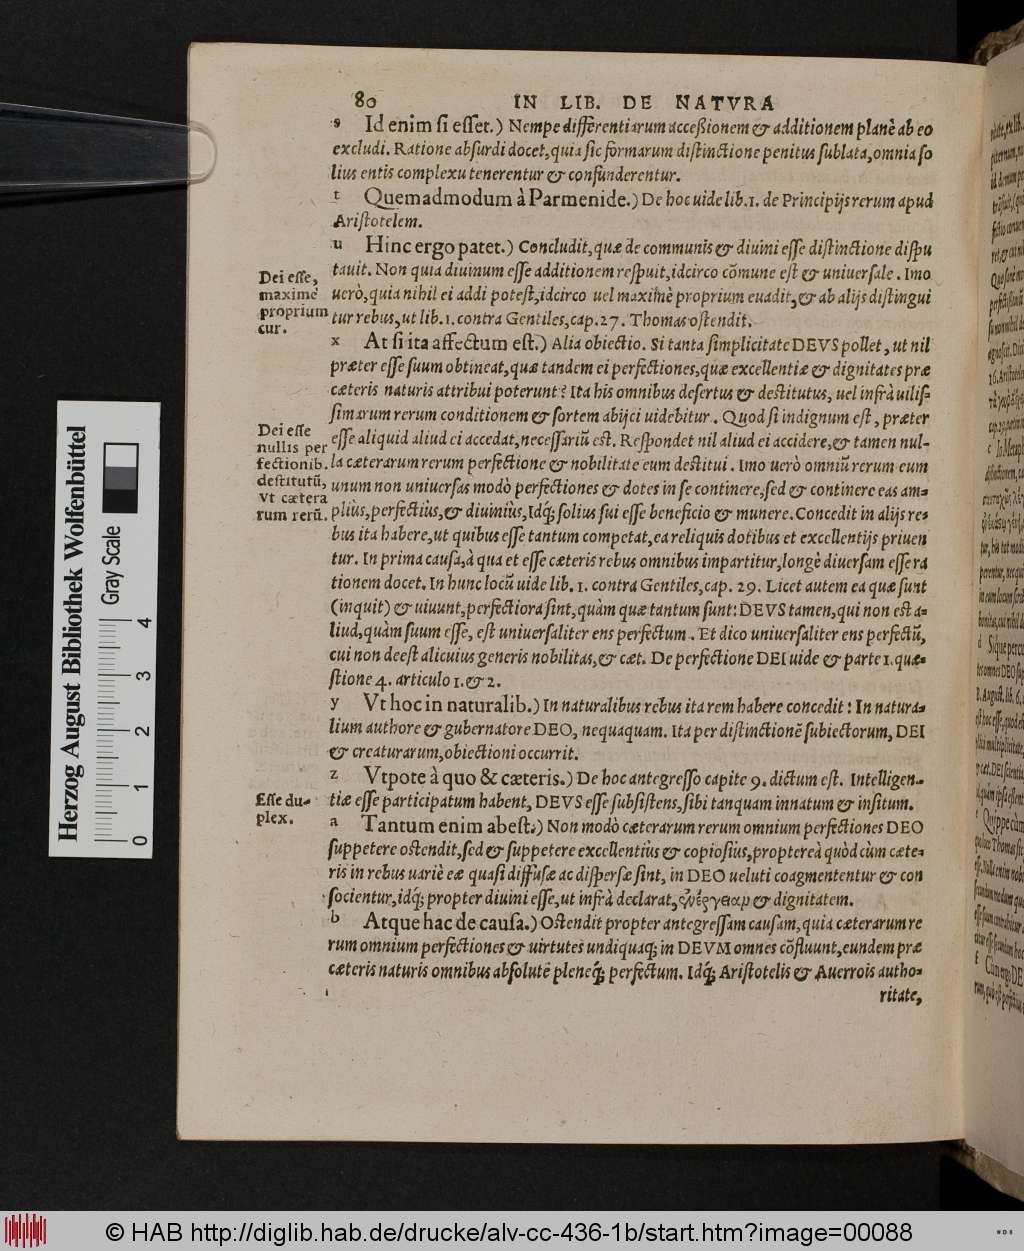 80 IN LIB. DE NATVRA
s Id enim si esset.) Nempe differentiarum accessionem & additionem planè ab eo
excludi. Ratione absurdi docet, quia sic formarum distinctione penitus sublata, omnia so
lius entis complexu tenerentur & confunderentur.
t Quemadmodum à Parmenide.) De hoc uide lib. 1. de Principijs rerum apud
Aristotelem.
u Hinc ergo patet.) Concludit, quæ de communis & diuini esse distinctione dispu
tauit. Non quia diuinum esse additionem respuit, idcirco cõmune est & uniuersale. Imo
uerò, quia nihil ei addi potest, idcirco uel maximè proprium euadit, & ab alijs distingui
tur rebus, ut lib. 1. contra Gentiles, cap. 27. Thomas ostendit.
Dei esse,
maximè
proprium
cur.
x At si ita affectum est.) Alia obiectio. Si tanta simplicitate DEVS pollet, ut nil
præter esse suum obtineat, quæ tandem ei perfectiones, quæ excellentiæ & dignitates præ
cæteris naturis attribui poterunt? Ita his omnibus desertus & destitutus, uel infrà uilis=
simarum rerum conditionem & sortem abijci uidebitur. Quod si indignum est, præter
esse aliquid aliud ei accedat, necessariũ est. Respondet nil aliud ei accidere, & tamen nul-
la cæterarum rerum perfectione & nobilitate eum destitui. Imo uerò omniũ rerum eum
unum non uniuersas modò perfectiones & dotes in se continere, sed & continere eas am=
pliùs, perfectiùs, & diuiniùs, Idq; solius sui esse beneficio & munere. Concedit in alijs re=
bus ita habere, ut quibus esse tantum competat, ea reliquis dotibus et excellentijs priuen
tur. In prima causa, à qua et esse cæteris rebus omnibus impartitur, longè diuersam esse ra
tionem docet. In hunc locũ uide lib. 1. contra Gentiles, cap. 29. Licet autem ea quæ sunt
(inquit) & uiuunt, perfectiora sint, quàm quæ tantum sunt: DEVS tamen, qui non est a=
liud, quàm suum esse, est uniuersaliter ens perfectum. Et dico uniuersaliter ens perfectũ,
cui non deest alicuius generis nobilitas, & cæt. De perfectione DEI uide & parte 1. quæ=
stione 4. articulo 1. & 2.
Dei esse
nullis per
fectionib.
destitutũ,
vt cætera
rum rerũ.
y Vt hoc in naturalib.) In naturalibus rebus ita rem habere concedit: In natura=
lium authore & gubernatore DEO, nequaquam. Ita per distinctionẽ subiectorum, DEI
& creaturarum, obiectioni occurrit.
z Vtpote à quo & cæteris.) De hoc antegresso capite 9. dictum est. Intelligen=
tiæ esse participatum habent, DEVS esse subsistens, sibi tanquam innatum & insitum.
Esse du=
plex.
a Tantum enim abest.) Non modò cæterarum rerum omnium perfectiones DEO
suppetere ostendit, sed & suppetere excellentiùs & copiosius, proptereà quòd cùm cæte=
ris in rebus uariè eæ quasi diffusæ ac dispersæ sint, in DEO ueluti coagmententur & con
socientur, idq; propter diuini esse, ut infrà declarat, & dignitatem.
b Atque hac de causa.) Ostendit propter antegressam causam, quia cæterarum re
rum omnium perfectiones & uirtutes undiquaq; in DEVM omnes cõfluunt, eundem præ
cæteris naturis omnibus absolutè pleneq́; perfectum. Idq́; Aristotelis & Auerrois autho=
ritate,
Herzog August Bibliothek Wolfenbüttel
Gray Scale
0 1 2 3 4
© HAB http://diglib.hab.de/drucke/alv-cc-436-1b/start.htm?image=00088